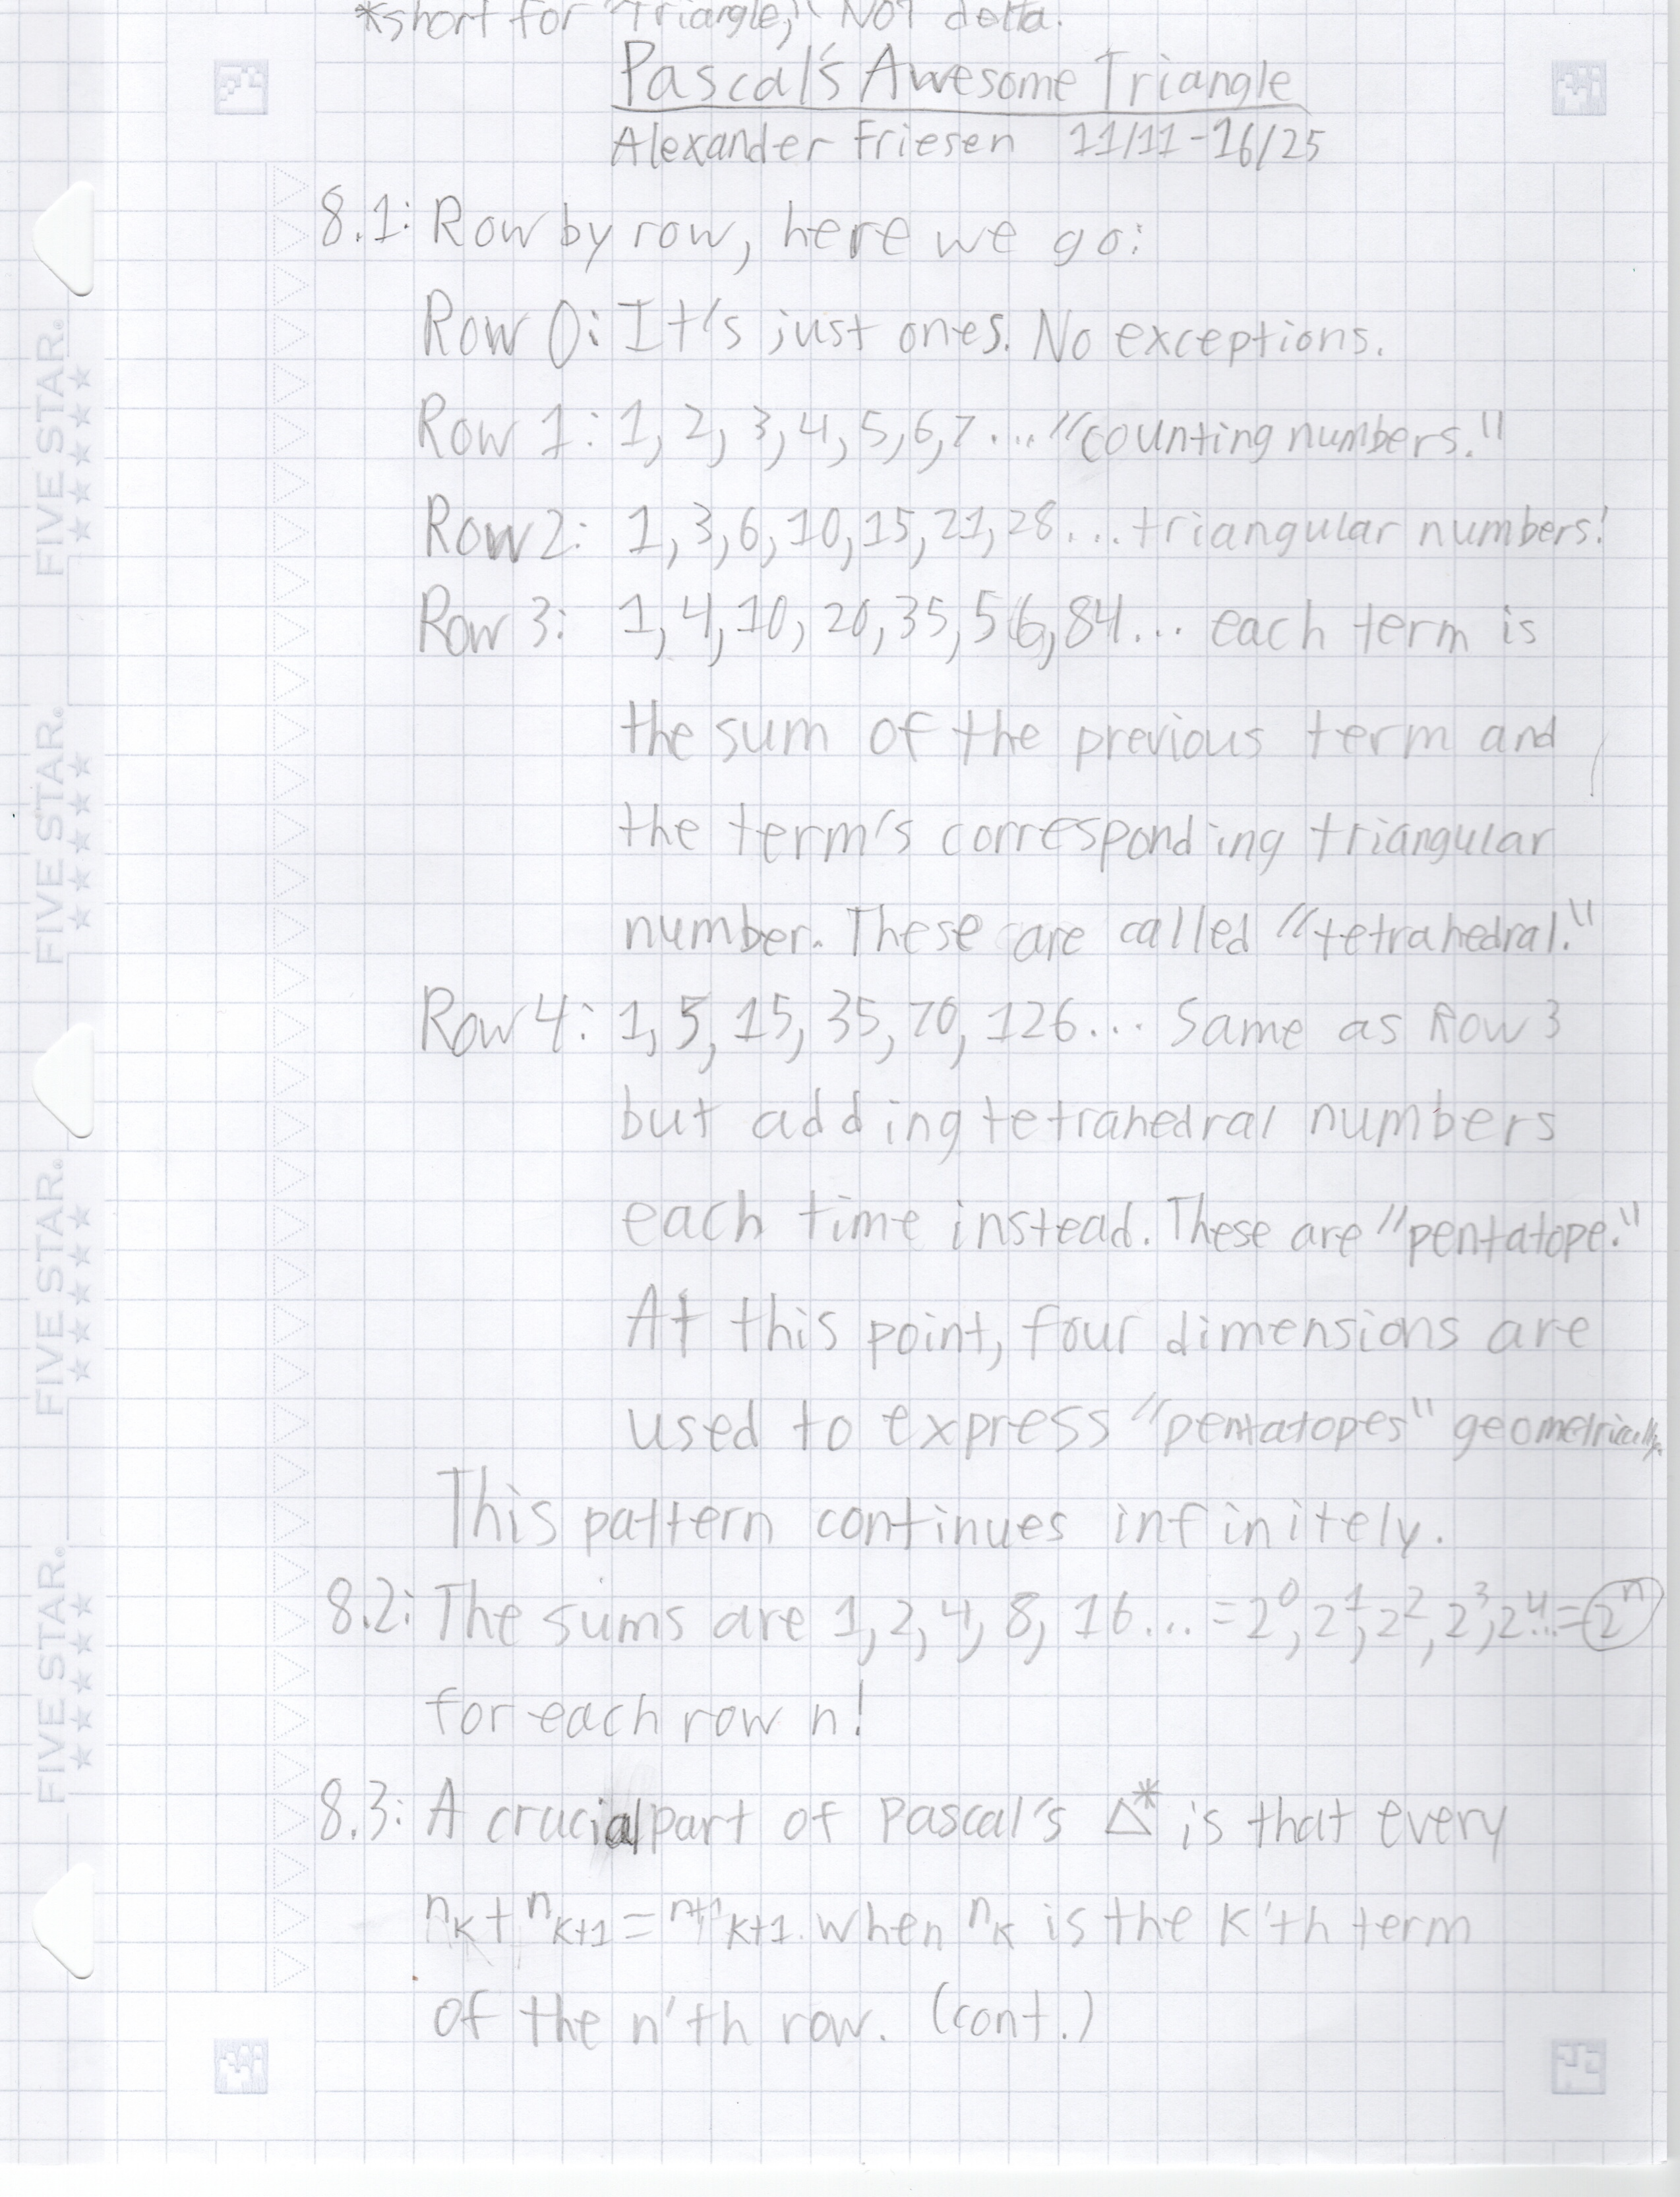 *short for "Triangle," NOT delta.
Pascal's Awesome Triangle
Alexander Friesen 11/11-16/25
8.1: Row by row, here we go:
Row 0: It's just ones. No exceptions.
Row 1: 1, 2, 3, 4, 5, 6, 7... "counting numbers."
Row 2: 1, 3, 6, 10, 15, 21, 28... triangular numbers!
Row 3: 1, 4, 10, 20, 35, 56, 84... each term is
the sum of the previous term and
the term's corresponding triangular
number. These are called "tetrahedral."
Row 4: 1, 5, 15, 35, 70, 126... Same as Row 3
but adding tetrahedral numbers
each time instead. These are "pentatope."
At this point, four dimensions are
used to express "pentatopes" geometrically.
This pattern continues infinitely.
8.2: The sums are 1, 2, 4, 8, 16... = 2⁰, 2¹, 2², 2³, 2⁴... = 2ⁿ
for each row n!
8.3: A crucial part of Pascal's △* is that every
ⁿK + ⁿK+1 = ⁿ⁺¹K+1. when ⁿK is the K'th term
of the n'th row. (cont.)
FIVE STAR.
FIVE STAR.
FIVE STAR.
FIVE STAR.